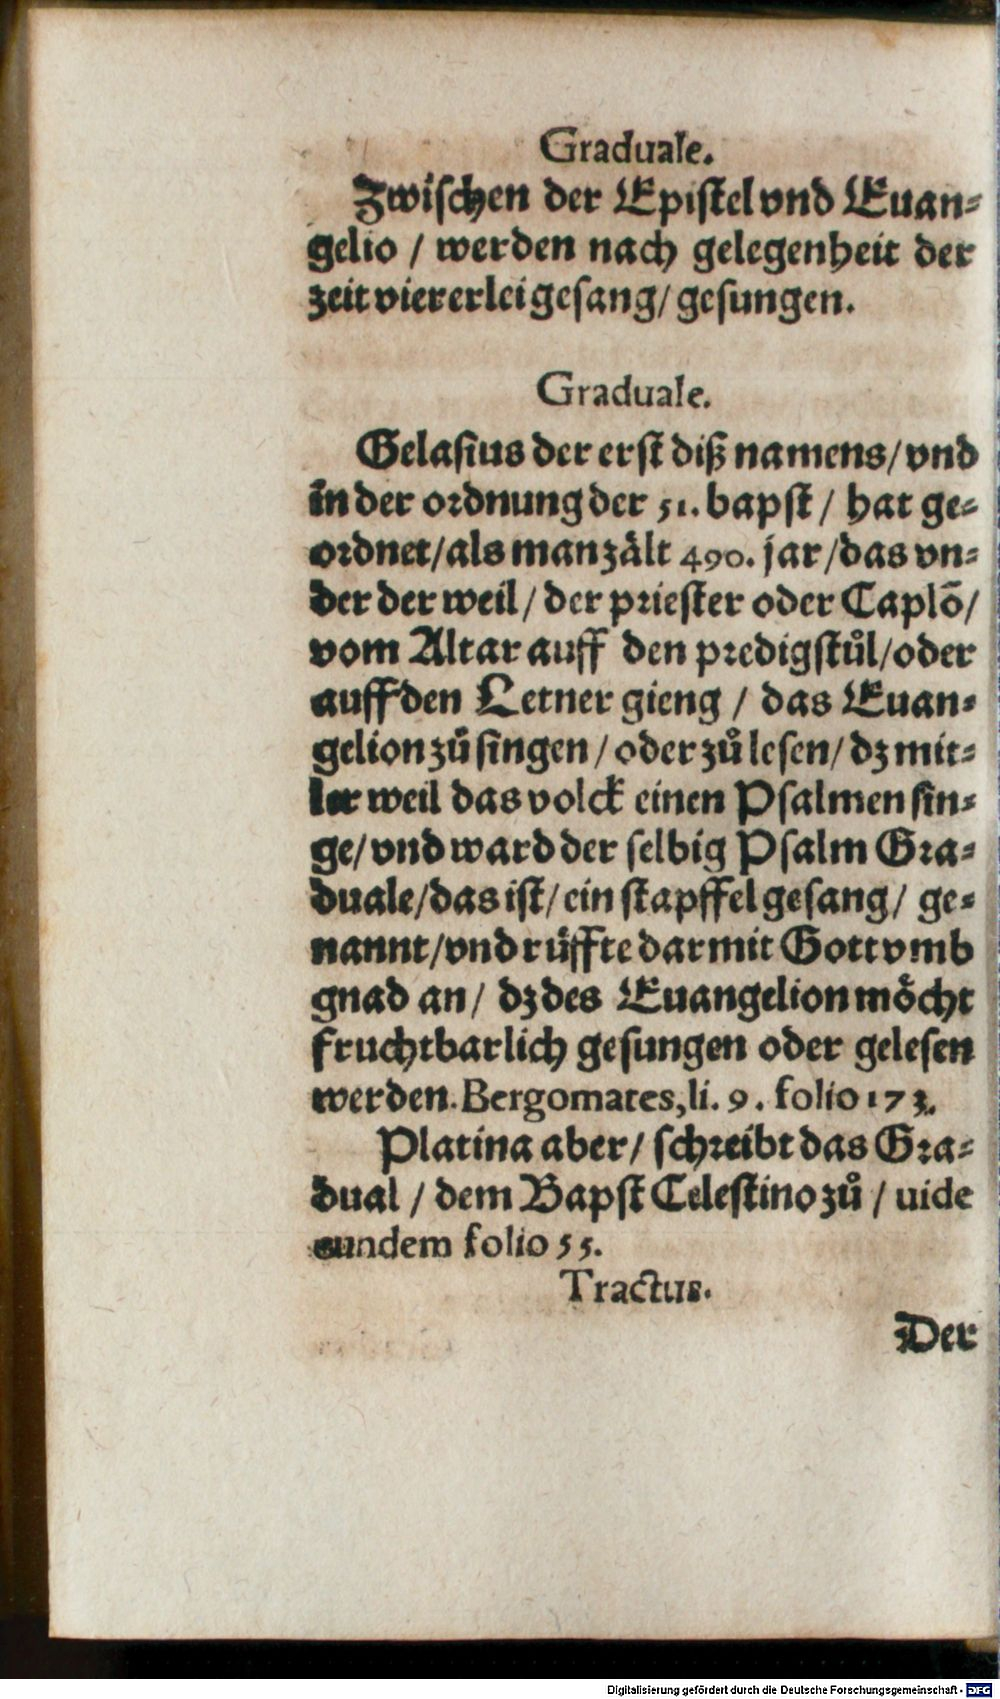 Graduale.
Zwischen der Epistel vnd Euan⸗
gelio / werden nach gelegenheit der
zeit viererlei gesang / gesungen.
Graduale.
Gelasius der erst diß namens / vnd
in der ordnung der 51. bapst / hat ge⸗
ordnet / als man zält 490. jar / das vn⸗
der der weil / der priester oder Caplō /
vom Altar auff den predigstůl / oder
auff den Letner gieng / das Euan⸗
gelion zů singen / oder zů lesen / dz mit⸗
ler weil das volck einen Psalmen sin⸗
ge / vnd ward der selbig Psalm Gra⸗
duale / das ist / ein stapffel gesang / ge⸗
nannt / vnd rüffte darmit Gott vmb
gnad an / dz des Euangelion möcht
fruchtbarlich gesungen oder gelesen
werden. Bergomates, li. 9. folio 173.
Platina aber / schreibt das Gra⸗
dual / dem Bapst Celestino zů / uide
eundem folio 55.
Tractus.
Der
Digitalisierung gefördert durch die Deutsche Forschungsgemeinschaft - DFG